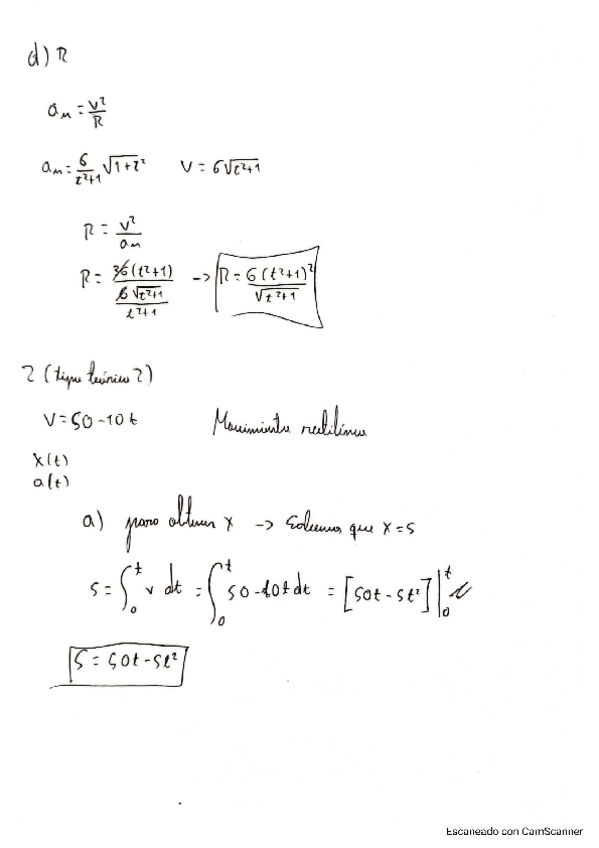 d) R
aₙ = v²/R
aₙ = 6/(t²+1) √(1+t²)   V = 6√(t²+1)
R = v²/aₙ
R = 36(t²+1) / (6√(t²+1) / (t²+1)) -> R = 6(t²+1)² / √(t²+1)
2 (tipo teórico 2)
V = 50 - 10t   Movimiento rectilíneo
x(t)
a(t)
a) para obtener x -> Sabemos que x = s
s = ∫₀ᵗ v dt = ∫₀ᵗ 50 - 10t dt = [50t - 5t²]|₀ᵗ
S = 50t - 5t²
Escaneado con CamScanner